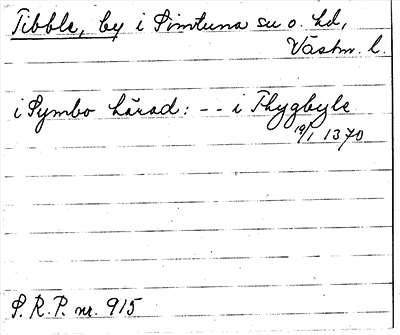 Tibble, by i Simtuna su o. hd,
Västm. l.
i Symbo härad: -- i Thygbyle
19/1 1370
S. R. P. nr. 915